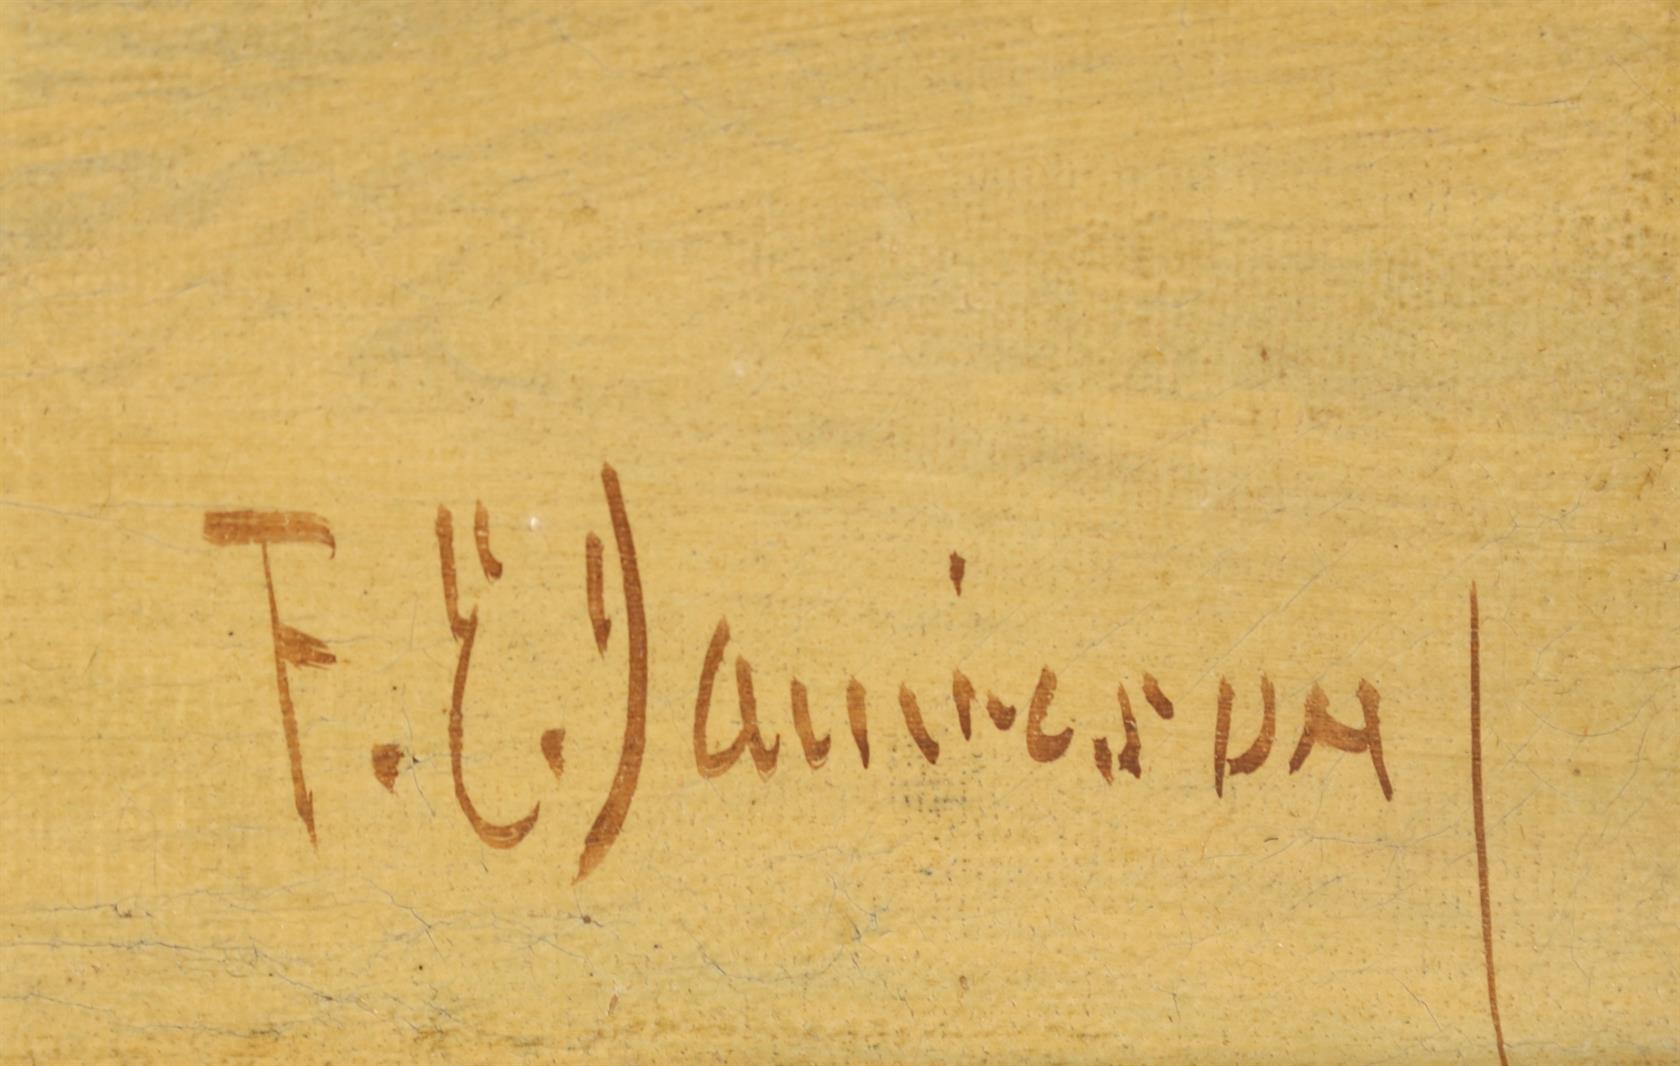 F. E. Jamieson